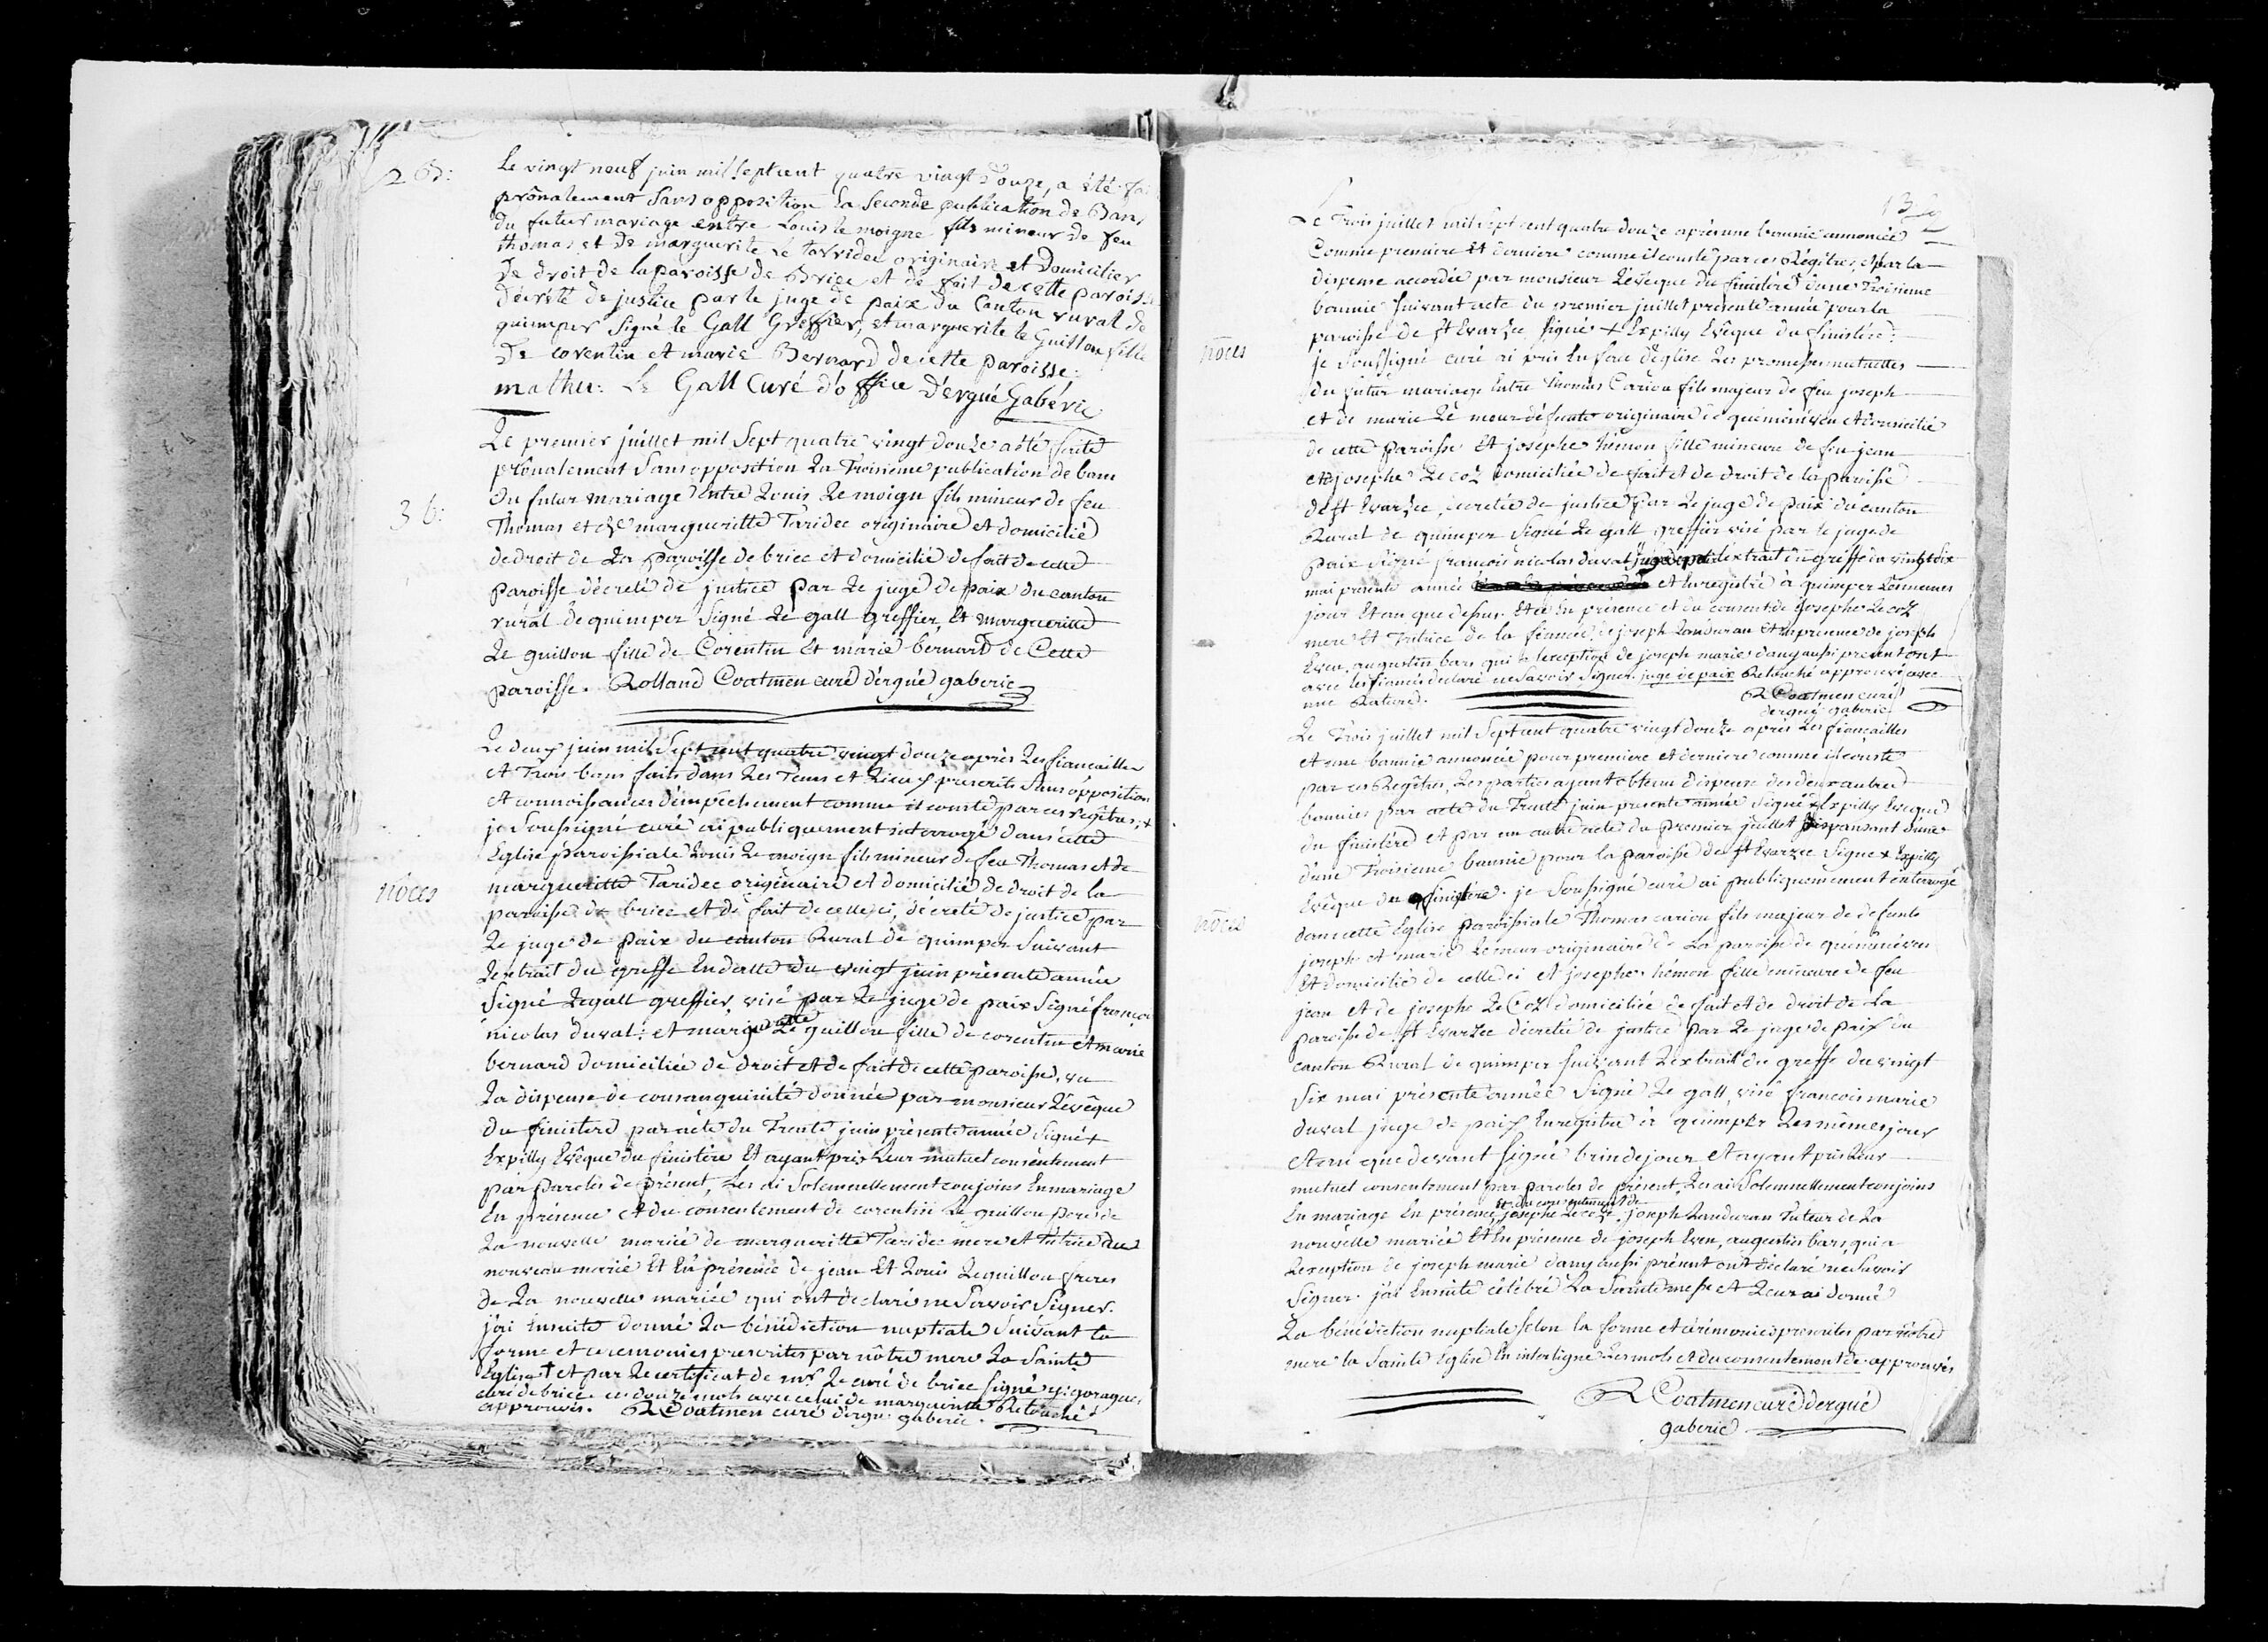 2 b:
Le vingt neuf juin mil sept cent quatre vingt Douze, a été fai
prônalement Sans opposition la Seconde publication de Bans
du futur mariage entre Louis le moigne fils mineur de feu
thomas et de marguerite Le tarridec originaire et Domicilier
De droit de la paroisse de Briec et de fait de cette paroisse
Décrété de justice par le juge de paix du Canton rural de
quimper Signé le Gall Greffier, et marguerite le Guillou fille
De corentin et marie Bernard de cette paroisse.
mathu: Le Gall Curé d'office D'ergué Gabéric
Le premier juillet mil Sept quatre vingt douze a été faite
prônalement Sans opposition La Troisieme publication de bans
3 b:
Du futur mariage Entre Louis Le moign fils mineur de feu
Thomas et de margueritte Taridec originaire et domicilié
de droit de La paroisse de briec et domicilié de fait de cette
paroisse décreté de justice par Le juge de paix du canton
rural de quimper Signé Le gall greffier, Et margueritte
Le guillou fille de Corentin Et marie bernard de Cette
paroisse. Rolland Coatmen curé d'ergué gaberic
Le deux juin mil Sept cent quatre vingt douze après Les fiancailles
et Trois bans faits dans Les Tems et Lieux prescrits Sans opposition
et connoissances d'empêchement comme il conste par ces régîtres, +
je Soussigné curé ai publiquement interrogé dans cette
Eglise paroissiale Louis Le moign fils mineur de feu Thomas et de
nôces
margueritte Taridec originaire et domicilié de droit de la
paroisse de briec et de fait de celle ci, décreté de justice par
Le juge de paix du canton Rural de quimper Suivant
L'extrait du greffe En datte du vingt juin présente année
Signé Le gall greffier, visé par Le juge de paix Signé françoi
nicolas duval: et margueritte Le guillou fille de corentin et marie
bernard domiciliée de droit et de fait de cette paroisse, vu
La dispense de consanguinité donnée par monsieur L'evêque
du finistere par acte du Trente juin présente année Signé +
Expilly Evêque du finistere Et ayant pris Leur mutuel consentement
par paroles de présent, Les ai Solemnellement conjoins En mariage
En présence et du consentement de corentin Le guillou pere de
La nouvelle mariée de margueritte Taridec mere et Tutrice du
nouveau marié Et En présence de jean Et Louis Le guillou freres
de La nouvelle mariée qui ont declaré ne Savoir Signer.
j'ai Ensuite donné La bénédiction nuptiale Suivant la
forme et ceremonies prescrites par nôtre mere La Sainte
Eglise + et par Le certificat de mr Le curé de briec Signé y: goragues
curé de briec. ces douze mots avec celui de margueritte Retouché
approuvés. R Coatmen curé d'ergué gaberic.
13
Le Trois juillet mil Sept cent quatre douze après une bannie annoncée
Comme premiere Et derniere comme il conste par ces Régîtres, et par la
dispense accordée par monsieur L'evêque du finistere d'une Troisieme
bannie Suivant acte du premier juillet présente année pour la
paroisse de St Evarzec Signé + Expilly Evêque du finistere:
nôces
je Soussigné curé ai pris En face d'eglise Les promesses mutuelles
du futur mariage Entre Thomas Cariou fils majeur de feu joseph
et de marie Le meur défunte originaire de quéménéven et domicilié
de cette paroisse Et josephe hémon fille mineure de feu jean
et josephe Le coz domiciliée de fait et de droit de la paroisse
de St Evarzec, decretée de justice Par Le juge de paix du canton
Rural de quimper Signé Le gall greffier visé par le juge de
paix Signé francois nicolas duval juge de paix l'extrait du greffe du vingt six
mai présente année et Enregistré à quimper Les memes
jour Et an que dessus, Et ce En présence et du consent. de josephe Le coz
mere Et Tutrice de la fiancée, de joseph Landuran et En présence de joseph
Even, augustin bars, qui à L'exception de joseph marie dany aussi présent ont
avec les fiancés declaré ne Savoir Signer. juge de paix Retouché approuvé avec
une Rature.
R Coatmen curé
d'ergué gaberic
Le Trois juillet mil Sept cent quatre vingt douze après Les fiançailles
et une bannie annoncée pour premiere et derniere comme il conste
par ces Regîtres, Les parties ayant obtenu dispense des deux autres
bannies par acte du Trente juin présente année Signé + Expilly Evêque
du finistère et par un autre acte du premier juillet dispensant d'une
d'une Troisieme bannie pour la paroisse de St Evarzec Signé + Expilly
Evêque du finistère. je Soussigné curé ai publiquement interrogé
nôces
dans cette Eglise paroissiale Thomas cariou fils majeur de defunts
joseph et marie Le meur originaire de La paroisse de quéménéven
Et domicilié de celle ci et josephe hémon fille mineure de feu
jean et de josephe Le Coz domiciliée de fait et de droit de La
paroisse de St Evarzec décretée de justice par Le juge de paix du
canton Rural de quimper Suivant L'extrait du greffe du vingt
Six mai présente année Signé Le gall, visé francois marie
duval juge de paix Enregistré à quimper Les mêmes jour
et an que devant Signé brindejonc et ayant pris Leur
mutuel consentement par paroles de présent, Les ai Solemnellement conjoins
En mariage En présence et du consentement de josephe Le coz, joseph Landuran Tuteur de La
nouvelle mariée Et En présence de joseph Even, augustin bars, qui a
L'exception de joseph marie dany aussi présent ont déclaré ne Savoir
Signer. j'ai Ensuite célébré La Sainte messe et Leur ai donné
La bénédiction nuptiale Selon la forme et cérémonies prescrites par nôtre
mere la Sainte Eglise En interligne Les mots et du consentement de approuvés
R Coatmen curé d'ergué
gaberic